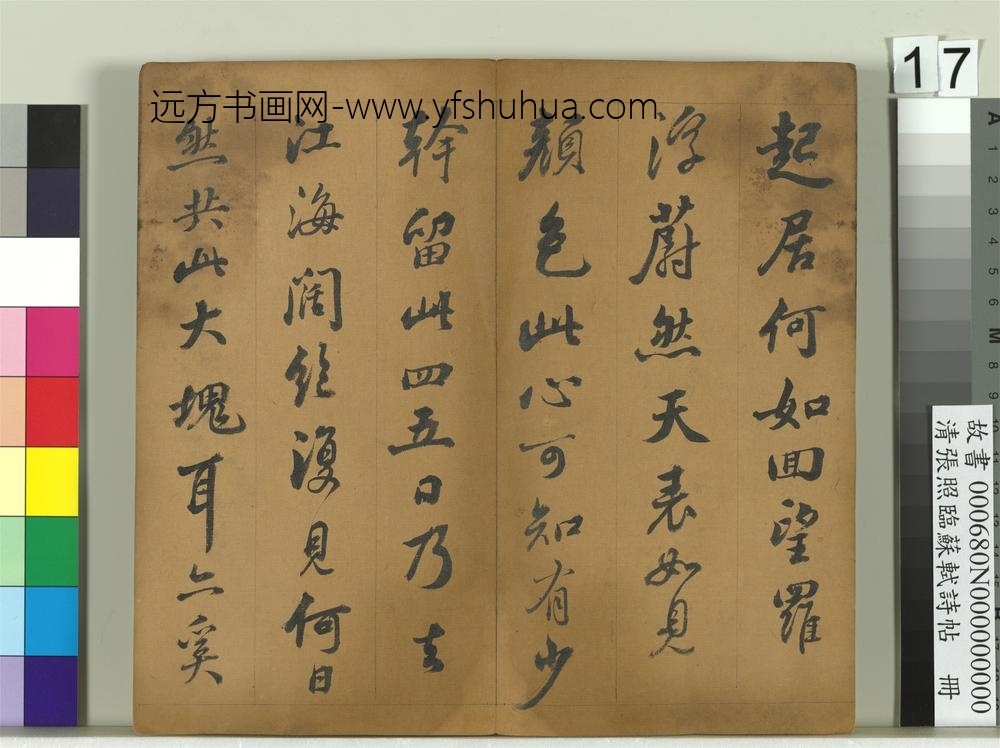 远方书画网-www.yfshuhua.com
17
起居何如回望羅
浮蔚然天表如見
顏色此心可知有少
幹留此四五日乃去
江海闊絕復見何日
然共此大塊耳亦奚
A 1 2 3 4 5 6 M 8 9
故書 000680N000000000
清張照臨蘇軾詩帖 冊